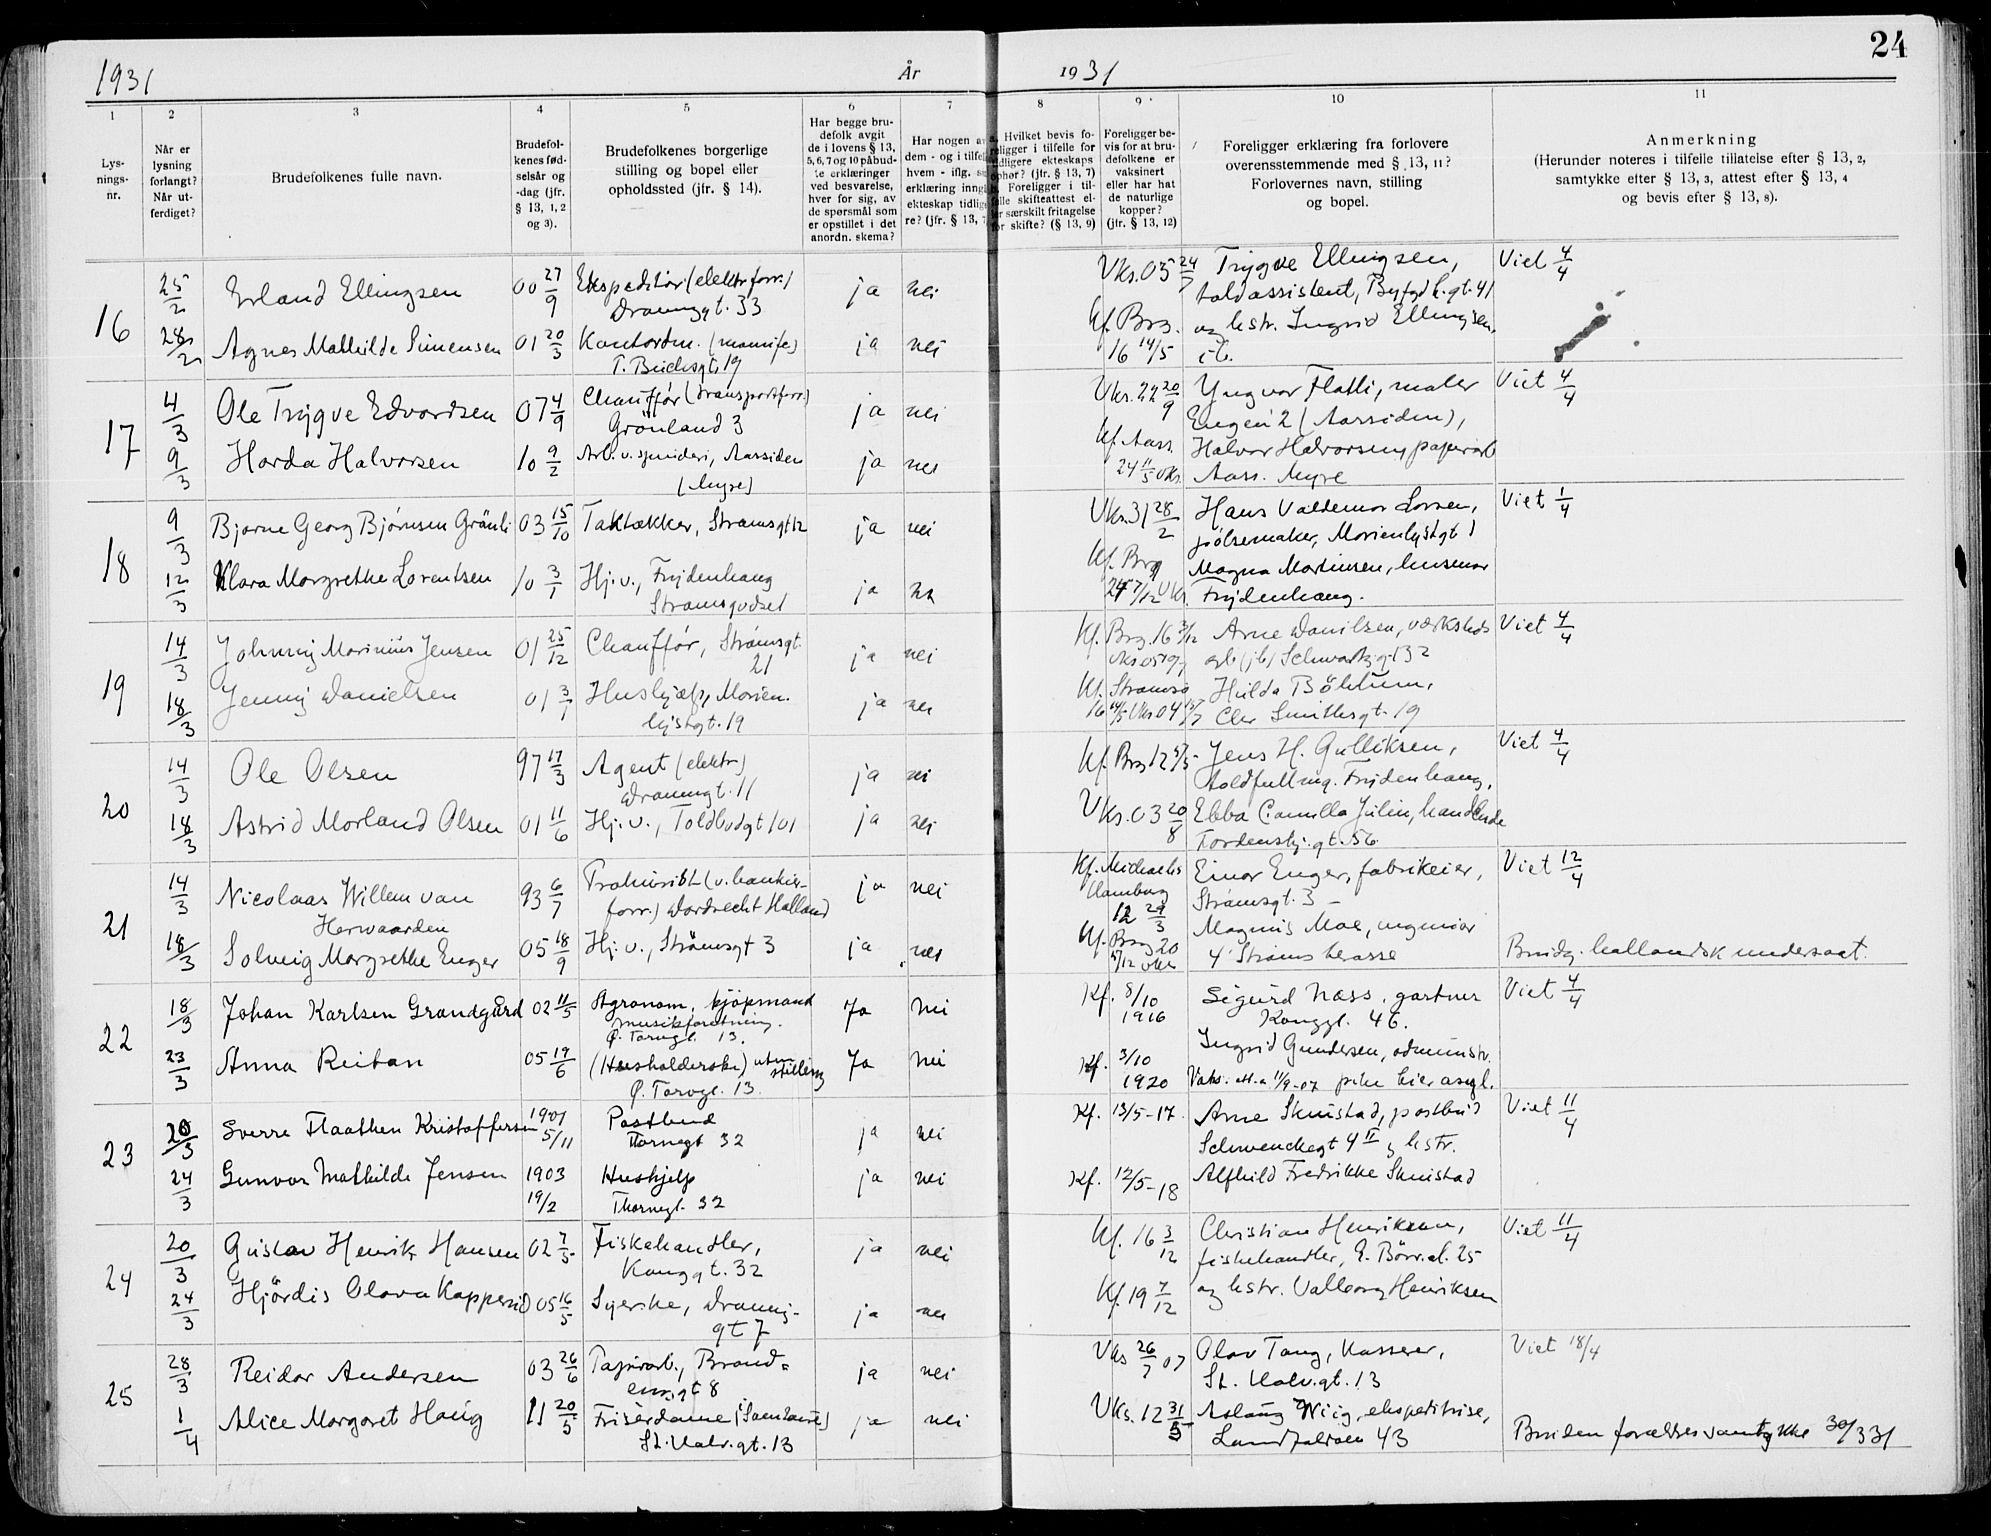 24
1931
År
1931
1
2
3
4
5
6
7
8
9
10
11
Lys-
nings-
nr.
Når er
lysning
forlangt?
Når ut-
ferdiget?
Brudefolkenes fulle navn.
Brudefol-
kenes fød-
selsår og
-dag (jfr.
§ 13, 1, 2
og 3).
Brudefolkenes borgerlige
stilling og bopel eller
opholdssted (jfr. § 14).
Har begge bru-
defolk avgit
de i lovens § 13,
5, 6, 7 og 10 påbud-
te erklæringer
ved besvarelse,
hver for sig, av
de spørsmål som
er opstillet i det
anordn. skema?
Har nogen av
dem - og i tilfelle
hvem - iflg.
erklæring inngå
ekteskap tidlige-
re? (jfr. § 13, 7
Hvilket bevis fo-
religger i tilfelle for
tidligere ekteskaps
ophør? (jfr. § 13, 7)
Foreligger i til-
felle skifteattest el-
ler særskilt fritagelse
for skifte? (§ 13, 9)
Foreligger be-
vis for at bru-
defolkene er
vaksinert
eller har hat
de naturlige
kopper?
(jfr. § 13, 12)
Foreligger erklæring fra forlovere
overensstemmende med § 13, 11?
Forlovernes navn, stilling
og bopel.
Anmerkning
(Herunder noteres i tilfelle tillatelse efter § 13, 2,
samtykke efter § 13, 3, attest efter § 13, 4
og bevis efter § 13, 8).
16
25/2 Erland Ellingsen 00 27/9 Ekspeditør (elektr forr.) ja nei Vks. 05 24/7 Trygve Ellingsen, Viet 4/4
Dramngt. 33 toldassistent,
28/2 Agnes Mathilde Simensen 01 20/3 Kontordm. ja nei Kf. Brg. 16 14/5 og hstr. Ingrid Ellingsen.
T. Buchsgt. 19
17
4/3 Ole Trygve Edvardsen 07 4/9 Chauffør (transportforr.) ja nei Vks. 22 20/9 Yngvar Flatli, maler Viet 4/4
Grønland 3 Engen 2 (Aassiden),
9/3 Horda Halvorsen 10 9/2 Arb. v. spinderi, Aassiden ja nei Kf. Aass. Halvor Halvorsen, papirarb
(Myre) 24 11/5 Vks. Aass. Myre
18
9/3 Bjarne Georg Bjørnsen Grønli 03 15/10 Taktækker, Strømsgt 12 ja nei Vks. 31 28/2 Hans Valdemar Larsen, Viet 1/4
pølsemaker, Marienlystgt 1
12/3 Klara Margrethe Lorentsen 10 3/1 Hj. v., Frydenhaug ja Kf. Brg Magna Martinsen, husmor
Strømsgodset Frydenhaug.
19
14/3 Johnny Marinius Jensen 01 25/12 Chauffør, Strømsgt. 21 ja nei Kf. Brg. 16 3/12 Arne Danielsen, værksteds Viet 4/4
18/3 Jenny Danielsen 01 3/1 Hushjælp, Marien- ja nei Kf. Strømsø Hilda Böhtum,
lystgt. 19 Chr Smithsgt. 19
20
14/3 Ole Olsen 97 17/3 Agent (elektr) ja nei Kf. Brg Jens H. Gulliksen, Viet 4/4
Dramngt. 11 toldfullmg. Frydenhaug,
18/3 Astrid Morland Olsen 01 11/6 Hj. v., Toldbodgt 101 ja nei Vks. 03 20/8 Ebba Camilla Julin, handlende
Tordenskj. gt. 56
21
14/3 Nicolaas Willem van 93 6/7 ja nei Kf. Michaelis Einar Enger, fabrikeier, Viet 12/4
Herwaarden forr.) Dordrecht Holland Hamburg 12 29/3 Strømsgt. 3 -
18/3 Solveig Margrethe Enger 05 18/9 Hj. v., Strømsgt 3 ja nei Kf. Brg 20 Magnus Moe, ingeniør
5/12 Vks 4 Strøms terasse Brudg. hollandsk undersaat.
22
18/3 Johan Karlsen Grandgård 02 11/5 Agronom, kjøpmand Ja Nei Kf. 8/10 1916 Sigurd Næss, gartner Viet 4/4
musikforretning. Konggt. 46.
Ø. Torvgt. 13.
23/3 Anna Reitan 05 19/6 (Husholderske) uten stilling Ja Nei Kf. 3/10 1920 Ingrid Gundersen, administr.
Ø. Torvgt. 13. Vaks. att. a 11/9-07
23
20/3 Sverre Flaathen Kristoffersen 1901 5/11 Postbud ja nei Kf. 13/5-17. Arne Skuistad, postbud Viet 11/4
Thornegt 32 Schwenckegt 4 II og hstr.
24/3 Gunvor Mathilde Jensen 1903 19/2 Hushjelp ja nei Kf. 12/5-18 Alfhild Fredrikke Skuistad
Thornegt. 32
24
20/3 Gustav Henrik Hansen 02 7/5 Fiskehandler, ja nei Kf. 16 3/12 Christian Henriksen, Viet 11/4
Konggt. 32 fiskehandler, E. Börresl. 25
24/3 Hjördis Olava Kappersid 05 16/5 Syerske, Dramng- ja nei Kf. 19 7/12 og hstr. Valborg Henriksen
gt 7
25
28/3 Reidar Andersen 03 26/6 Papirarb., Brand- ja nei Vks 26/7 07 Olav Tang, Kasserer, Viet 18/4
engt 8 St. Halv. gt. 13
1/4 Alice Margaret Haug 11 20/5 Frisørdame ja nei Vks. 12 31/5 Aslaug Wiig, ekspeditrise,
St. Halv. gt. 13 Landfalløen 43 Bruden forældres samtykke 30/3 31